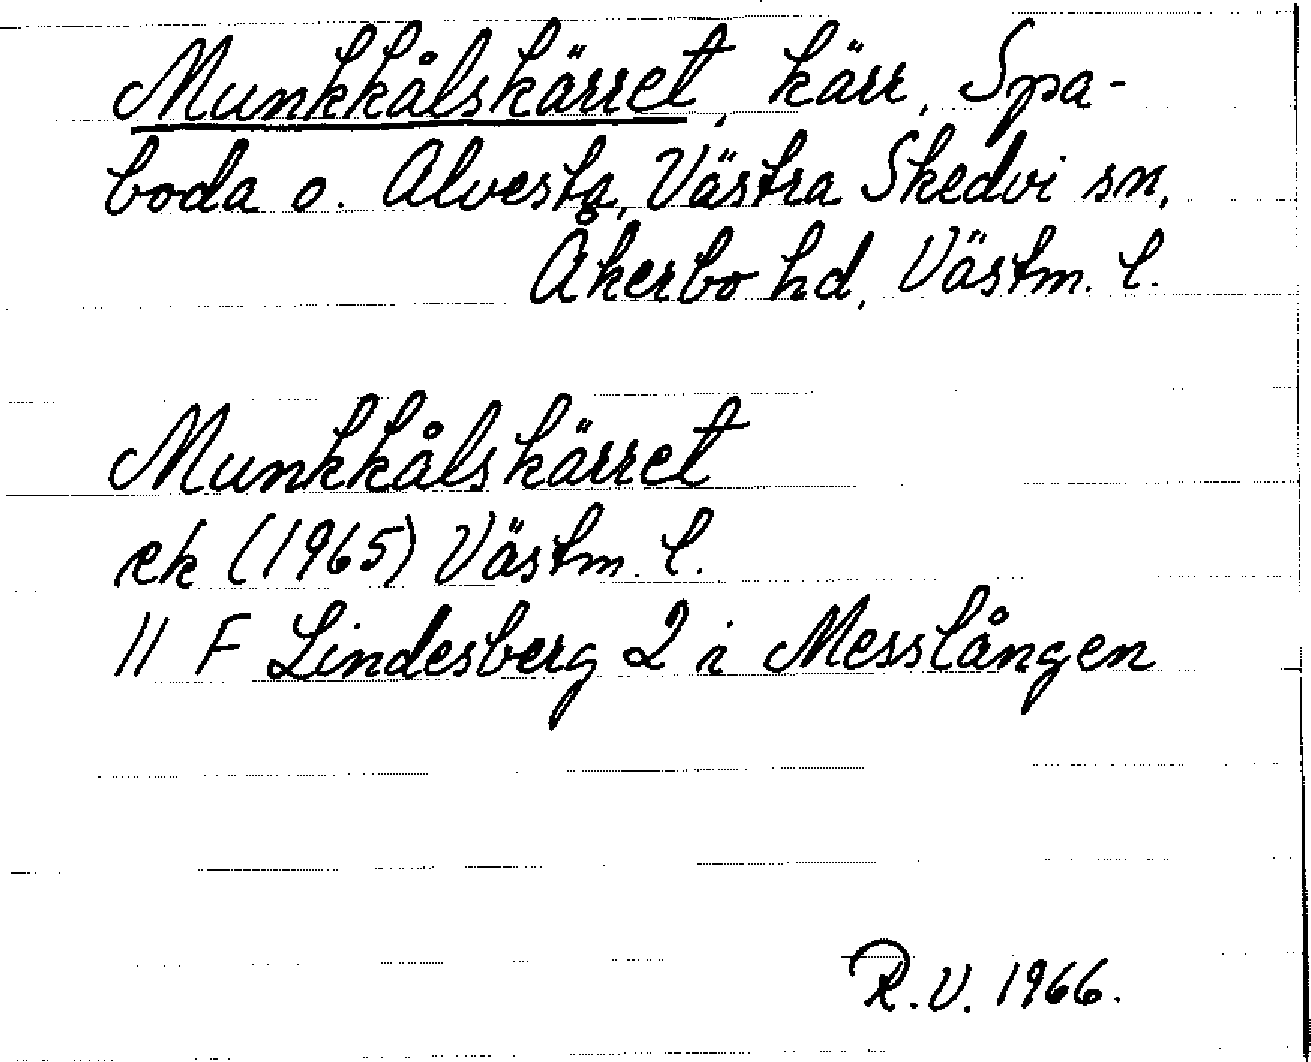 Munkkålskärret, kärr, Spa-
boda o. Alvesta, Västra Skedvi sn,
Åkerbo hd, Västm. l.
Munkkålskärret
ek (1965) Västm. l.
11 F Lindesberg 2 i Messlången
R.V. 1966.